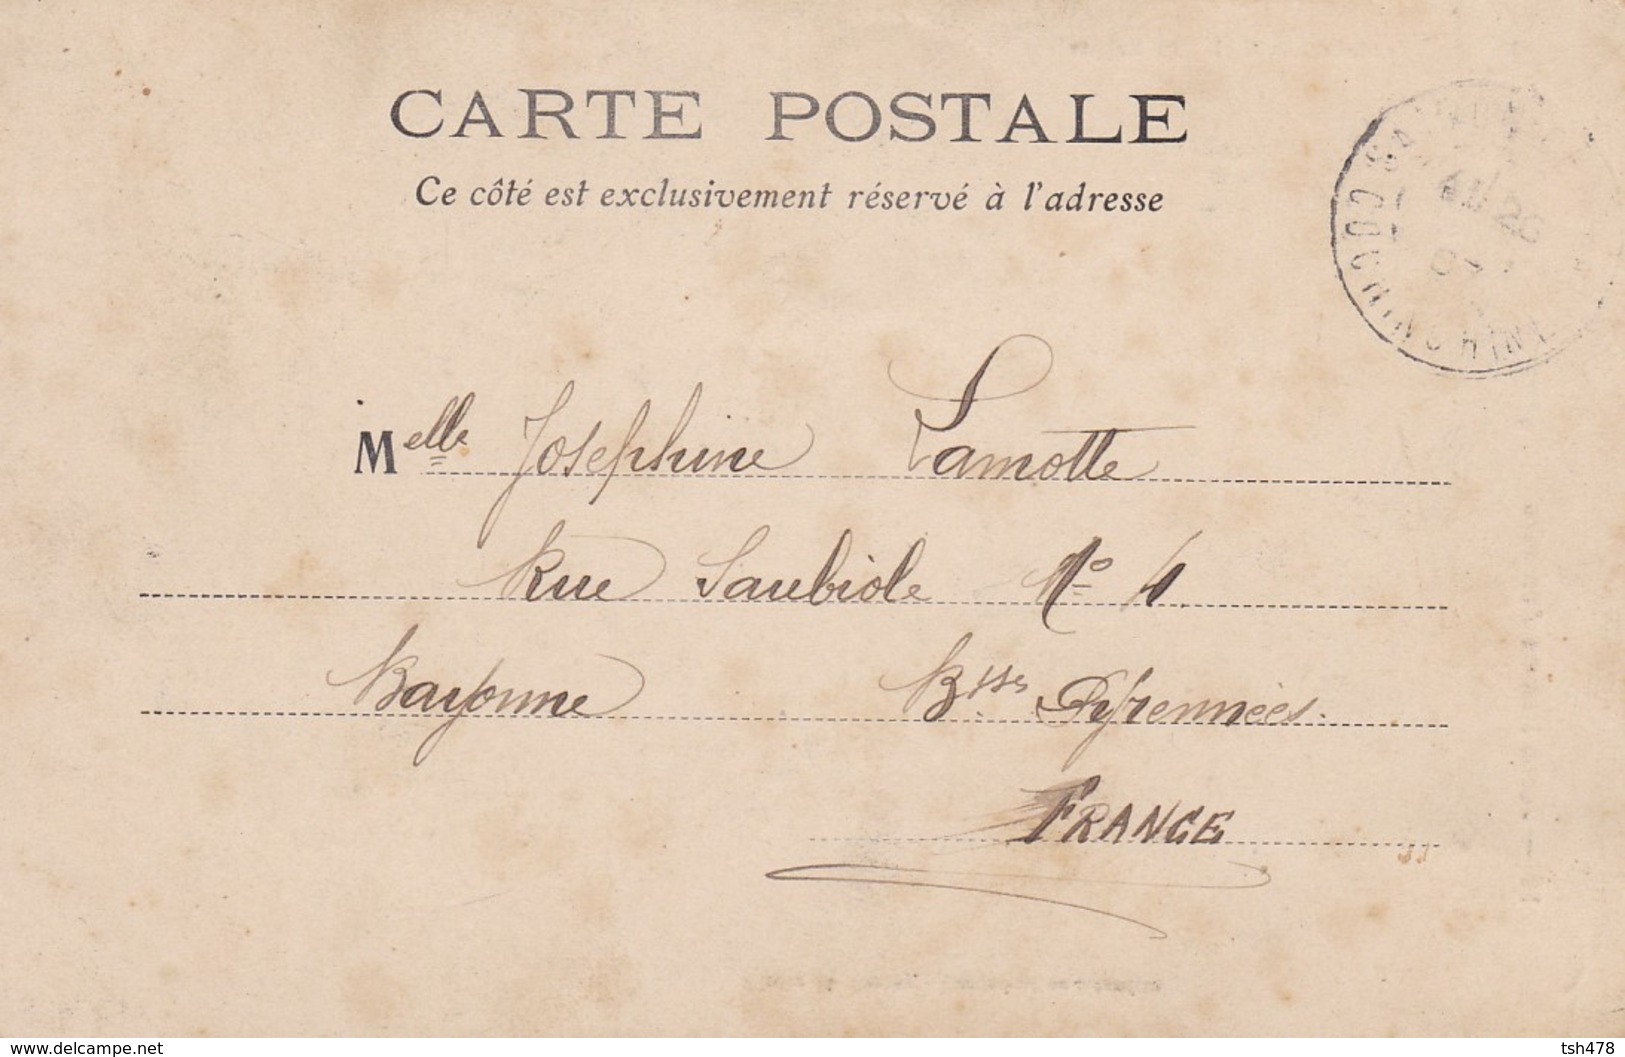 CARTE POSTALE
Ce côté est exclusivement réservé à l'adresse
COCHINCHINE
Melle Josephine Lamotte
Rue Saubiole No 4
Bayonne Bsses Pyrennées.
FRANCE
www.delcampe.net
tsh478